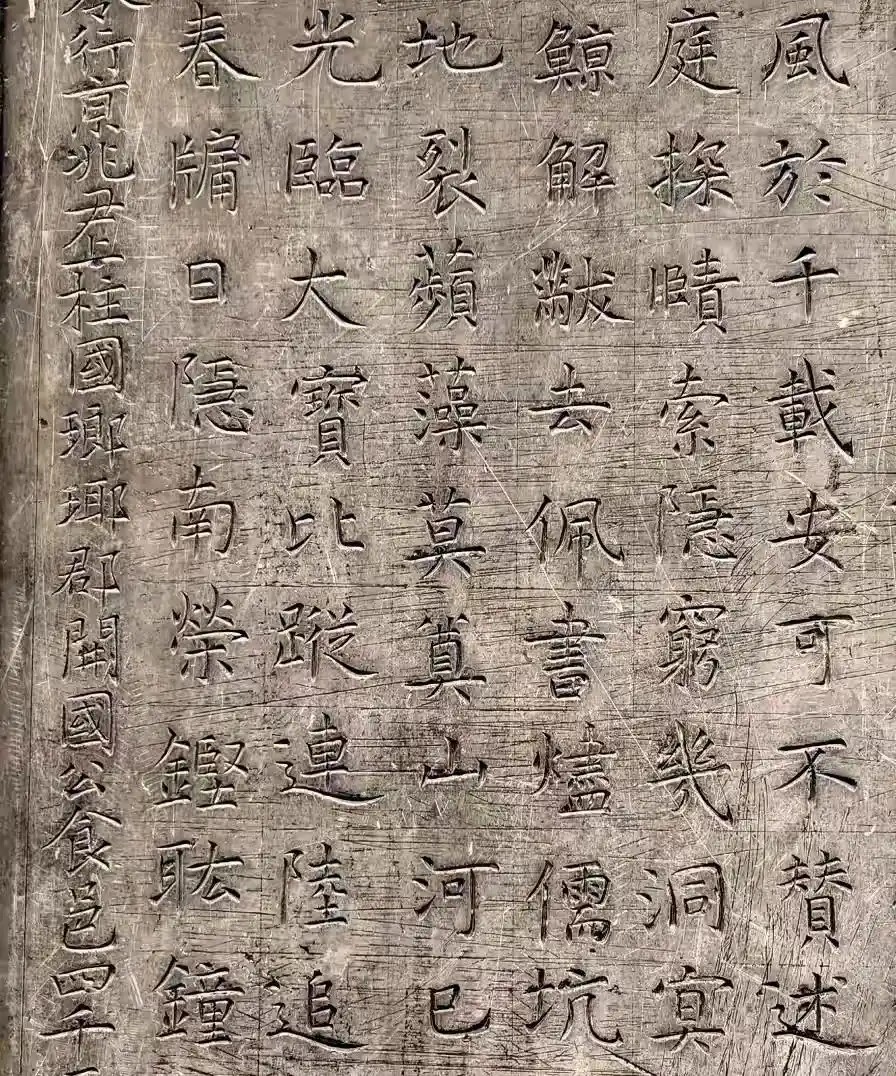 風於千載安可不贊述
庭探賾索隱窮幾洞冥
鯨解黻去佩書燼儒坑
地裂蘋藻莫奠山河已
光臨大寶比蹤連陸追
春牖日隱南榮鏗耾鐘
行京兆尹上柱國瑯瑘郡開國公食邑四千